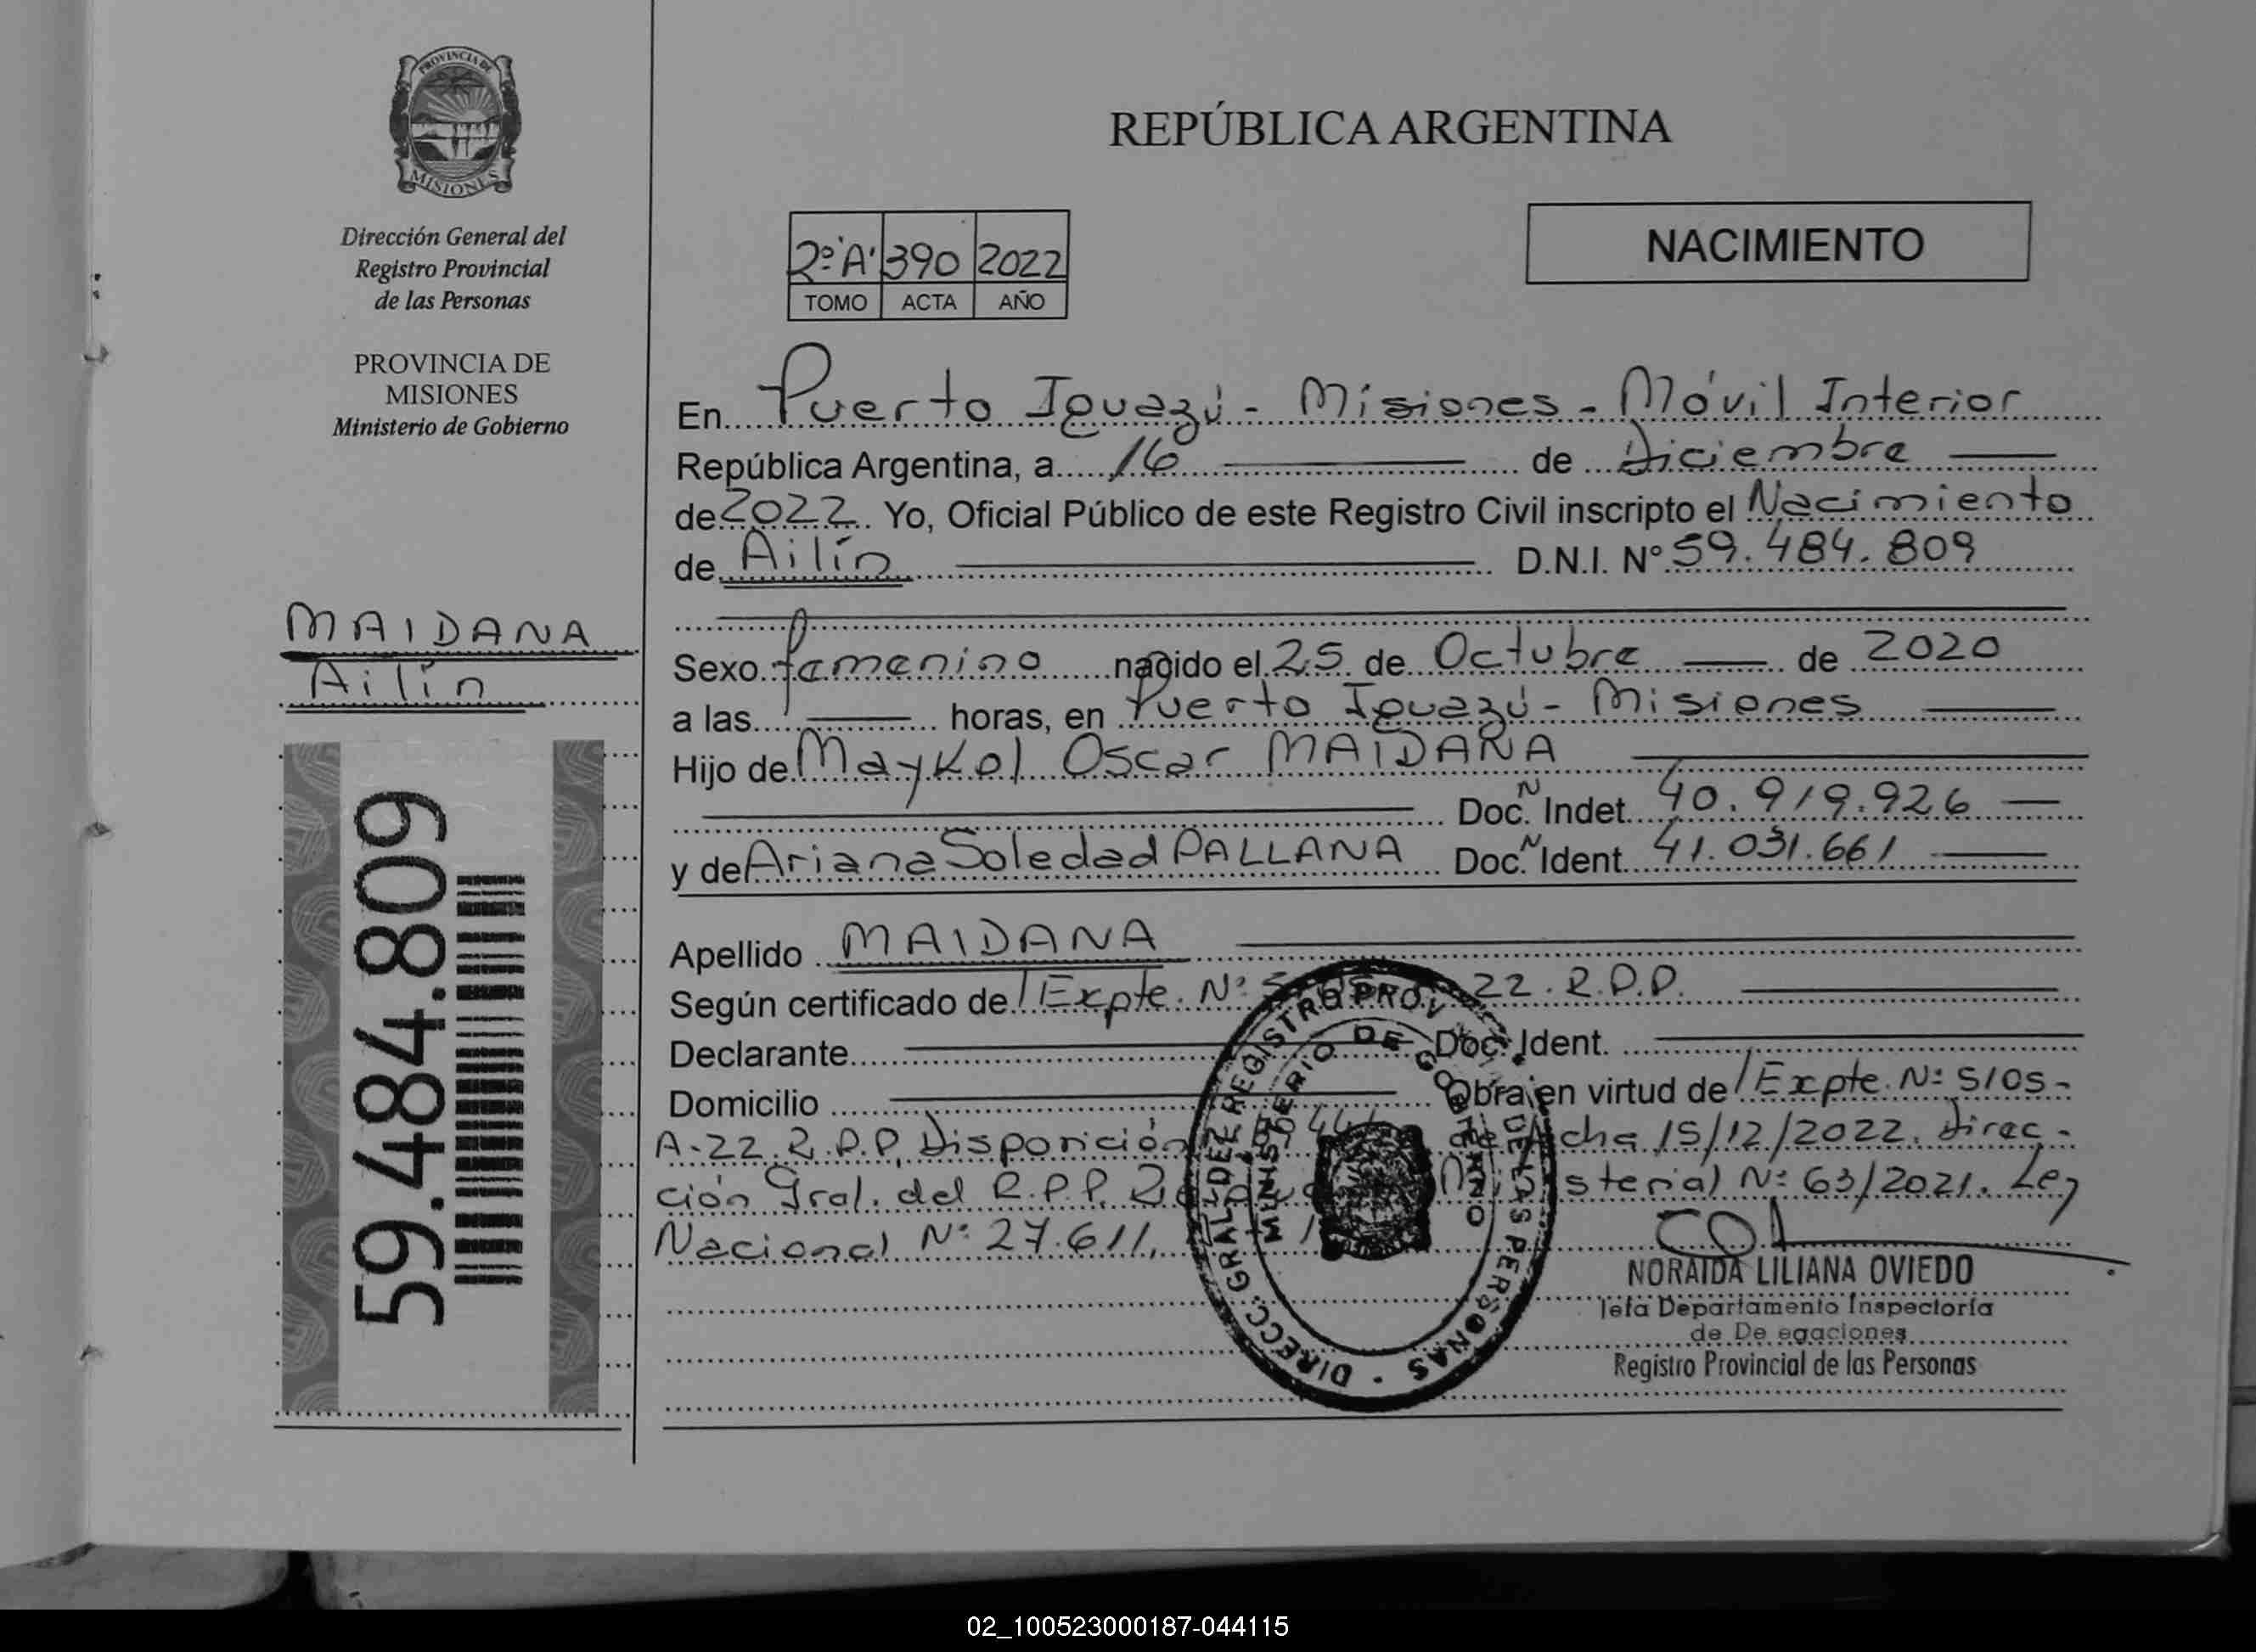 PROVINCIA DE
MISIONES
Dirección General del
Registro Provincial
de las Personas
PROVINCIA DE
MISIONES
Ministerio de Gobierno
MAIDANA
Ailín
59.484.809
REPÚBLICA ARGENTINA
NACIMIENTO
2º "A" 390 2022
TOMO ACTA AÑO
En Puerto Iguazú - Misiones - Móvil Interior
República Argentina, a 16 de Diciembre
de 2022. Yo, Oficial Público de este Registro Civil inscripto el Nacimiento
de Ailín D.N.I. Nº 59.484.809
Sexo femenino nacido el 25 de Octubre de 2020
a las horas, en Puerto Iguazú - Misiones
Hijo de Maykol Oscar MAIDANA
Doc. N Indet. 40.919.926
y de Ariana Soledad PALLANA Doc. N Ident. 41.031.661
Apellido MAIDANA
Según certificado de Expte. Nº 22. R.P.P.
Declarante Doc. Ident.
Domicilio Obra en virtud de Expte. Nº 5105-
A-22. R.P.P. Disposición de fecha 15/12/2022. Direc-
ción Gral. del R.P.P. Ministerial Nº 63/2021. Ley
Nacional Nº 27.611.
DIRECC. GRAL. DEL REGISTRO PROV. DE LAS PERSONAS
MINISTERIO DE GOBIERNO
NORAIDA LILIANA OVIEDO
Jefa Departamento Inspectoría
de De egaciones
Registro Provincial de las Personas
02_100523000187-044115